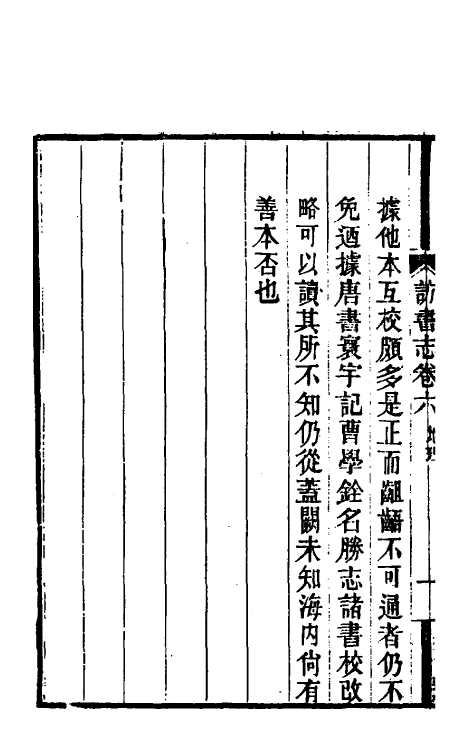 訪書志卷六 地理 一
據他本互校頗多是正而齟齬不可通者仍不
免迺據唐書寰宇記曹學銓名勝志諸書校改
略可以讀其所不知仍從蓋闕未知海內尚有
善本否也